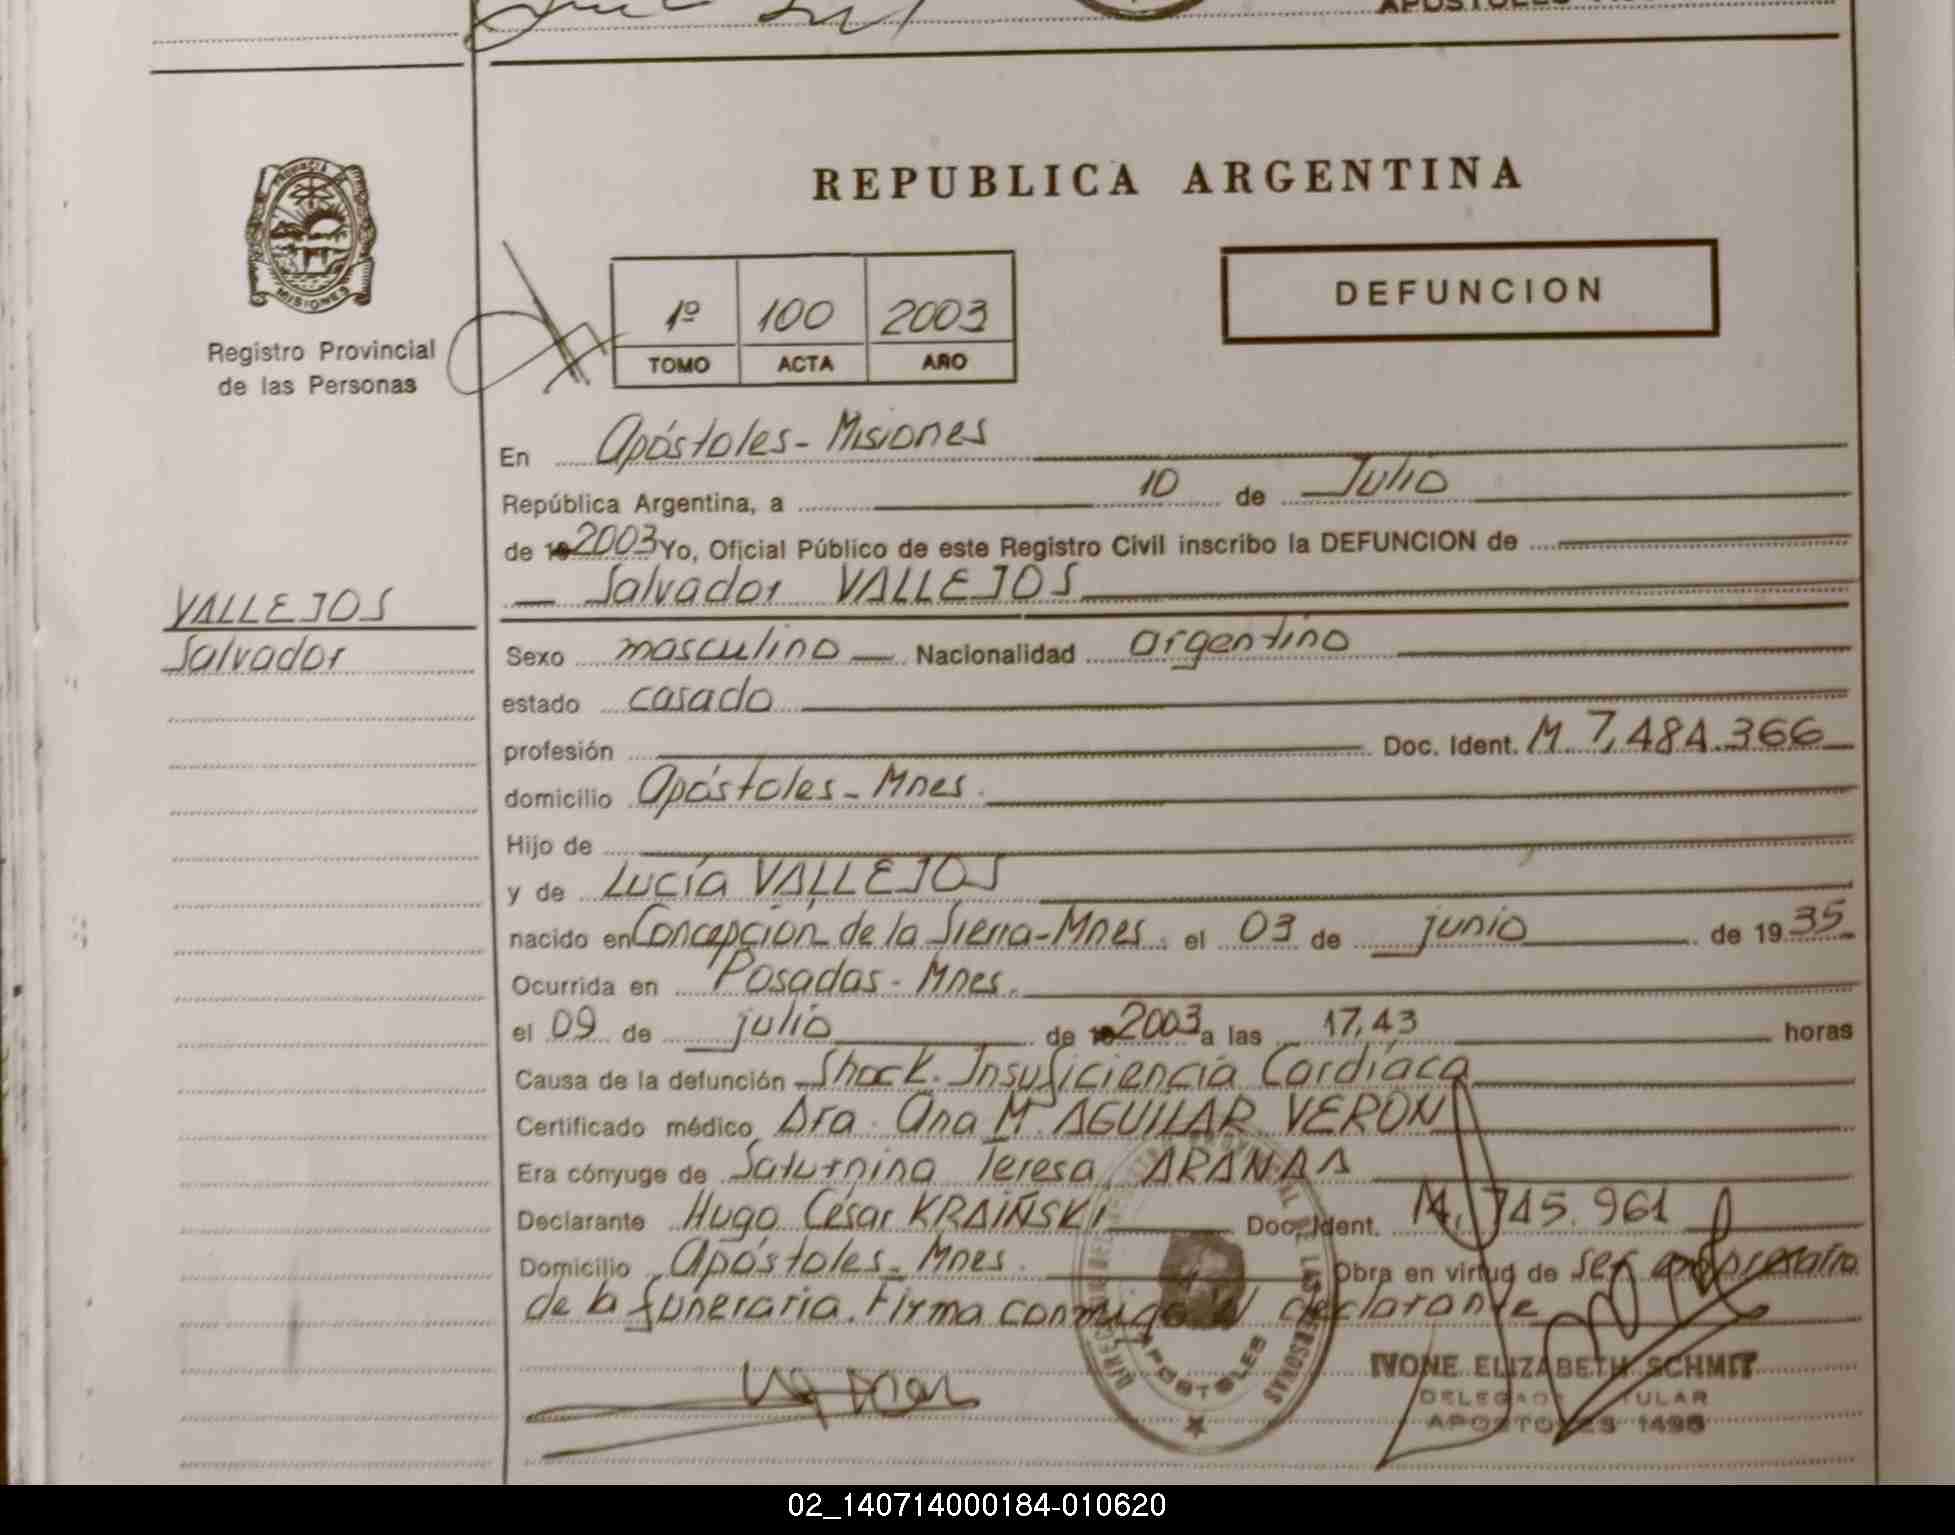 APOSTOLES
PROVINCIA DE
MISIONES
REPUBLICA ARGENTINA
DEFUNCION
1º 100 2003
TOMO ACTA AÑO
Registro Provincial
de las Personas
En Apóstoles - Misiones
República Argentina, a 10 de Julio
de 2003 Yo, Oficial Público de este Registro Civil inscribo la DEFUNCION de
Salvador VALLEJOS
VALLEJOS
Salvador
Sexo masculino Nacionalidad argentino
estado casado
profesión Doc. Ident. M 7,484.366
domicilio Apóstoles - Mnes.
Hijo de
y de Lucía VALLEJOS
nacido en Concepción de la Sierra - Mnes. el 03 de junio de 19 35
Ocurrida en Posadas - Mnes.
el 09 de julio de 2003 a las 17,43 horas
Causa de la defunción Shock. Insuficiencia Cardíaca
Certificado médico Dra. Ana M. AGUILAR VERON
Era cónyuge de Saturnina Teresa ARANDA
Declarante Hugo César KRAIÑSKI Doc. Ident. 745.961
Domicilio Apóstoles - Mnes. Obra en virtud de ser
de la funeraria. Firma conmigo el declarante
IVONE ELIZABETH SCHMIT
DELEGADO TITULAR
APOSTOLES 1498
APOSTOLES
02_140714000184-010620